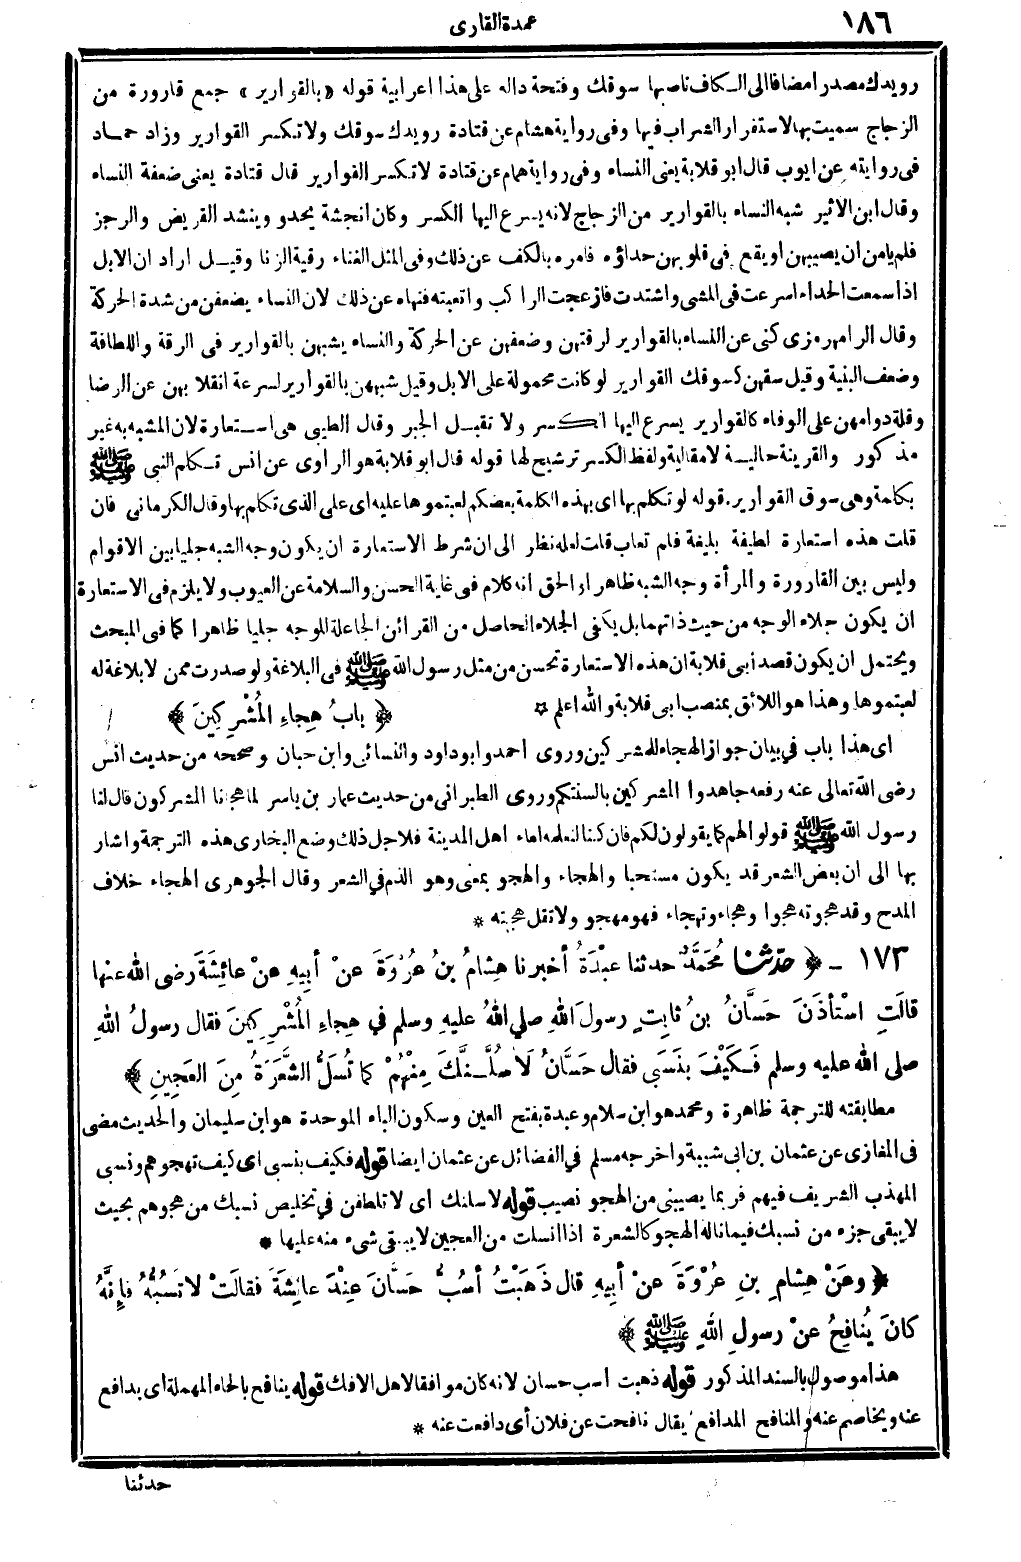 ١٨٦
عمدة القارى
رويدك مصدرا مضافا الى الكاف ناصبها سوقك وفتحة داله على هذا اعرابية قوله «بالقوارير» جمع قارورة من
الزجاج سميت بها لاستقرار الشراب فيها وفى رواية هشام عن قتادة رويدك سوقك ولا تكسر القوارير وزاد حماد
فى روايته عن ايوب قال ابو قلابة يعنى النساء وفى رواية همام عن قتادة لا تكسر القوارير قال قتادة يعنى ضعفة النساء
وقال ابن الاثير شبه النساء بالقوارير من الزجاج لانه يسرع اليها الكسر وكان انجشة يحدو وينشد القريض والرجز
فلم يامن ان يصيبهن او يقع فى قلوبهن حداؤه فامره بالكف عن ذلك وفى المثل الغناء رقية الزنا وقيل اراد ان الابل
اذا سمعت الحداء اسرعت فى المشى واشتدت فازعجت الراكب واتعبته فنهاه عن ذلك لان النساء يضعفن من شدة الحركة
وقال الرامهرمزى كنى عن النساء بالقوارير لرقتهن وضعفهن عن الحركة والنساء يشبهن بالقوارير فى الرقة واللطافة
وضعف البنية وقيل سقهن كسوقك القوارير لو كانت محمولة على الابل وقيل شبههن بالقوارير لسرعة انقلابهن عن الرضا
وقلة دوامهن على الوفاء كالقوارير يسرع اليها الكسر ولا تقبل الجبر وقال الطيبى هى استعارة لان المشبه به غير
مذكور والقرينة حالية لا مقالية ولفظ الكسر ترشيح لها قوله قال ابو قلابة هو الراوى عن انس تكلم النبى ﷺ
بكلمة وهى سوق القوارير. قوله لو تكلم بها اى بهذه الكلمة بعضكم لعبتموها عليه اى على الذى تكلم بها وقال الكرمانى فان
قلت هذه استعارة لطيفة بليغة فلم تعاب قلت لعله نظر الى ان شرط الاستعارة ان يكون وجه الشبه جليا بين الاقوام
وليس بين القارورة والمرأة وجه الشبه ظاهرا والحق انه كلام فى غاية الحسن والسلامة عن العيوب ولا يلزم فى الاستعارة
ان يكون جلاء الوجه من حيث ذاتهما بل يكفى الجلاء الحاصل من القرائن الجاعلة للوجه جليا ظاهرا كما فى المبحث
ويحتمل ان يكون قصد أبى قلابة ان هذه الاستعارة تحسن من مثل رسول الله ﷺ فى البلاغة ولو صدرت ممن لا بلاغة له
لعبتموها وهذا هو اللائق بمنصب ابى قلابة والله اعلم ☆ ﴿ بابُ هِجاءِ المُشْرِكِينَ ﴾
اى هذا باب في بيان جواز الهجاء للمشركين وروى احمد وابو داود والنسائى وابن حبان وصححه من حديث انس
رضى الله تعالى عنه رفعه جاهدوا المشركين بالسنتكم وروى الطبرانى من حديث عمار بن ياسر لما هجانا المشركون قال لنا
رسول الله ﷺ قولوا لهم كما يقولون لكم فان كنا لنعلمه اماء اهل المدينة فلاجل ذلك وضع البخارى هذه الترجمة واشار
بها الى ان بعض الشعر قد يكون مستحبا والهجاء والهجو بمعنى وهو الذم في الشعر وقال الجوهرى الهجاء خلاف
المدح وقد هجوته هجوا وهجاء وتهجاء فهو مهجو ولا تقل هجيته *
١٧٣ - ﴿ حدّثنا مُحَمَّدٌ حدثنا عبْدَةُ أخبرنا هِشامُ بنُ عُرْوَةَ عنْ أبِيهِ عنْ عائِشَةَ رضى الله عنها
قالَتِ اسْتأذَنَ حَسَّانُ بنُ ثابِتٍ رسولَ اللهِ صلي اللهُ عليهِ وسلم في هِجاءِ المُشْرِكِينَ فقال رسولُ اللهِ
صلى الله عليه وسلم فَكَيْفَ بنَسَبَى فقال حَسَّانُ لَأَسُلَّنَّكَ مِنْهُمْ كما تُسَلُّ الشَّعَرَةُ مِنَ العَجِينِ ﴾
مطابقته للترجمة ظاهرة ومحمد هو ابن سلام وعبدة بفتح العين وسكون الباء الموحدة هو ابن سليمان والحديث مضى
فى المغازى عن عثمان بن ابى شيبة واخرجه مسلم في الفضائل عن عثمان ايضا قوله فكيف بنسبى اى كيف تهجوهم ونسبى
المهذب الشريف فيهم فربما يصيبنى من الهجو نصيب قوله لاسلنك اى لاتلطفن في تخليص نسبك من هجوهم بحيث
لا يبقى جزء من نسبك فيما ناله الهجو كالشعرة اذا انسلت من العجين لا يبقى شىء منه عليها *
﴿ وعنْ هِشامِ بنِ عُرْوَةَ عنْ أبِيهِ قال ذَهَبْتُ أسُبُّ حَسَّانَ عِنْدَ عائِشَةَ فقالَتْ لا تَسُبُّهُ فإنَّهُ
كانَ يُنافِحُ عنْ رسولِ اللهِ ﷺ ﴾
هذا موصول بالسند المذكور قوله ذهبت اسب حسان لانه كان موافقا لاهل الافك قوله ينافح بالحاء المهملة اى يدافع
عنه ويخاصم عنه والمنافح المدافع يقال نافحت عن فلان أى دافعت عنه *
حدثنا